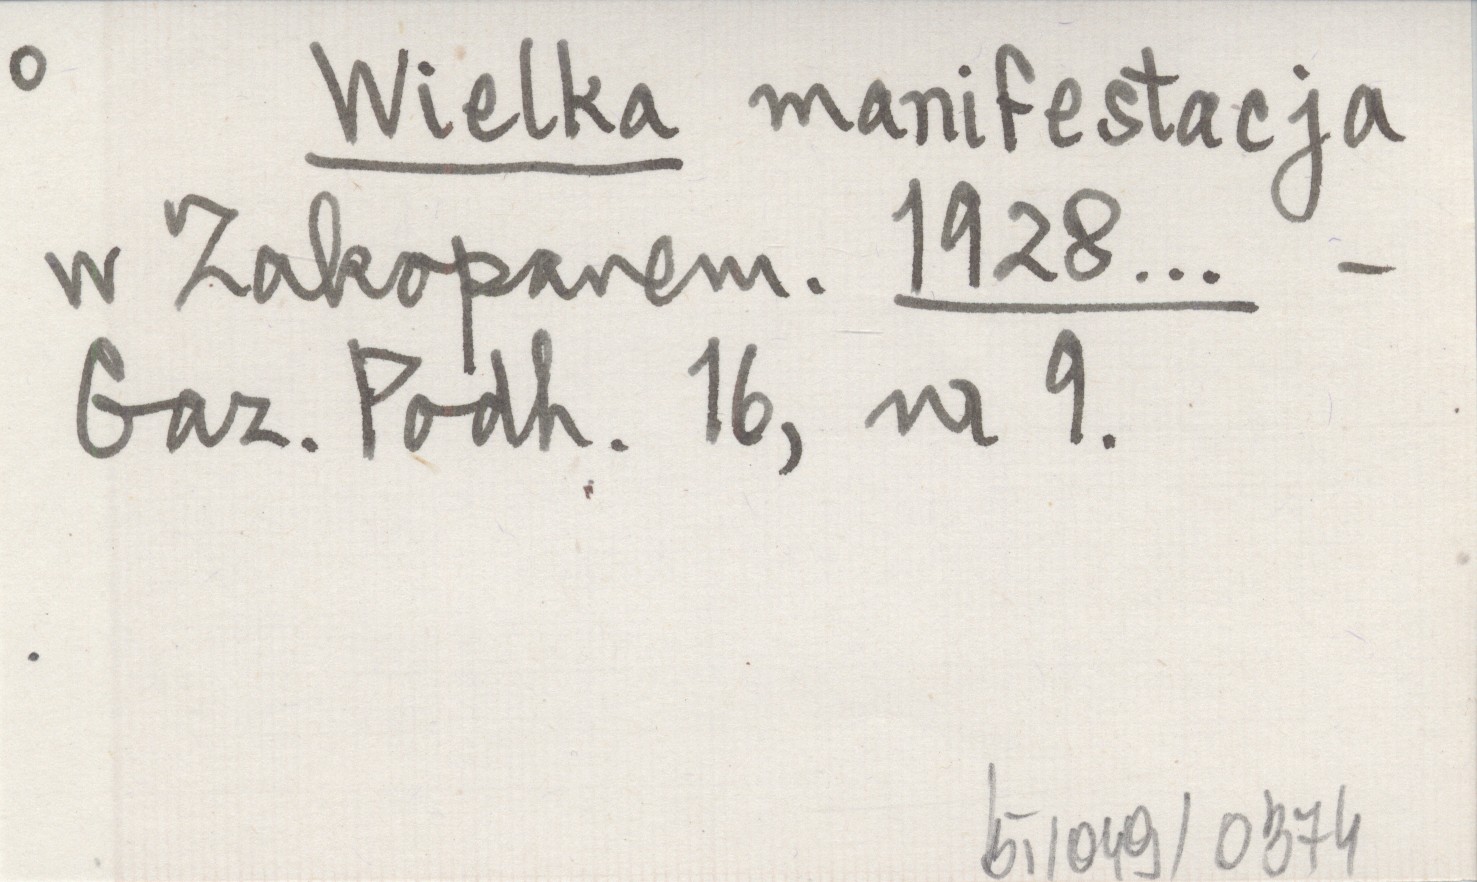 o Wielka manifestacja
w Zakopanem. 1928... -
Gaz. Podh. 16, nr 9.
/049/0374